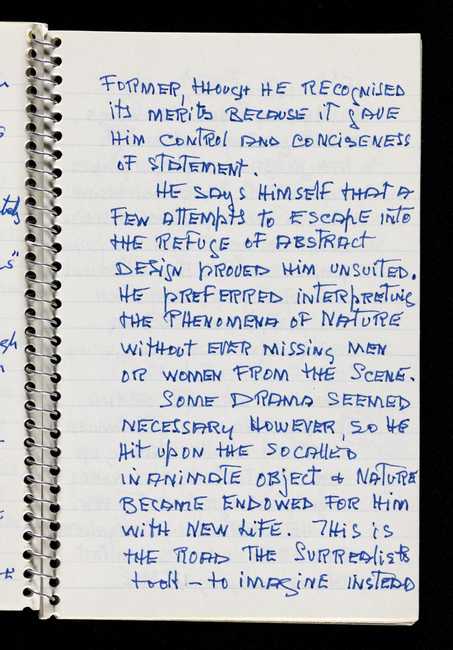 FORMER, THOUGH HE RECOGNISED
ITS MERITS BECAUSE IT GAVE
HIM CONTROL AND CONCISENESS
OF STATEMENT.
HE SAYS HIMSELF THAT A
FEW ATTEMPTS TO ESCAPE INTO
THE REFUGE OF ABSTRACT
DESIGN PROVED HIM UNSUITED.
HE PREFERRED INTERPRETING
THE PHENOMENA OF NATURE
WITHOUT EVER MISSING MEN
OR WOMEN FROM THE SCENE.
SOME DRAMA SEEMED
NECESSARY HOWEVER, SO HE
HIT UPON THE SOCALLED
INANIMATE OBJECT & NATURE
BECAME ENDOWED FOR HIM
WITH NEW LIFE. THIS IS
THE ROAD THE SURREALISTS
TOOK – TO IMAGINE INSTEAD